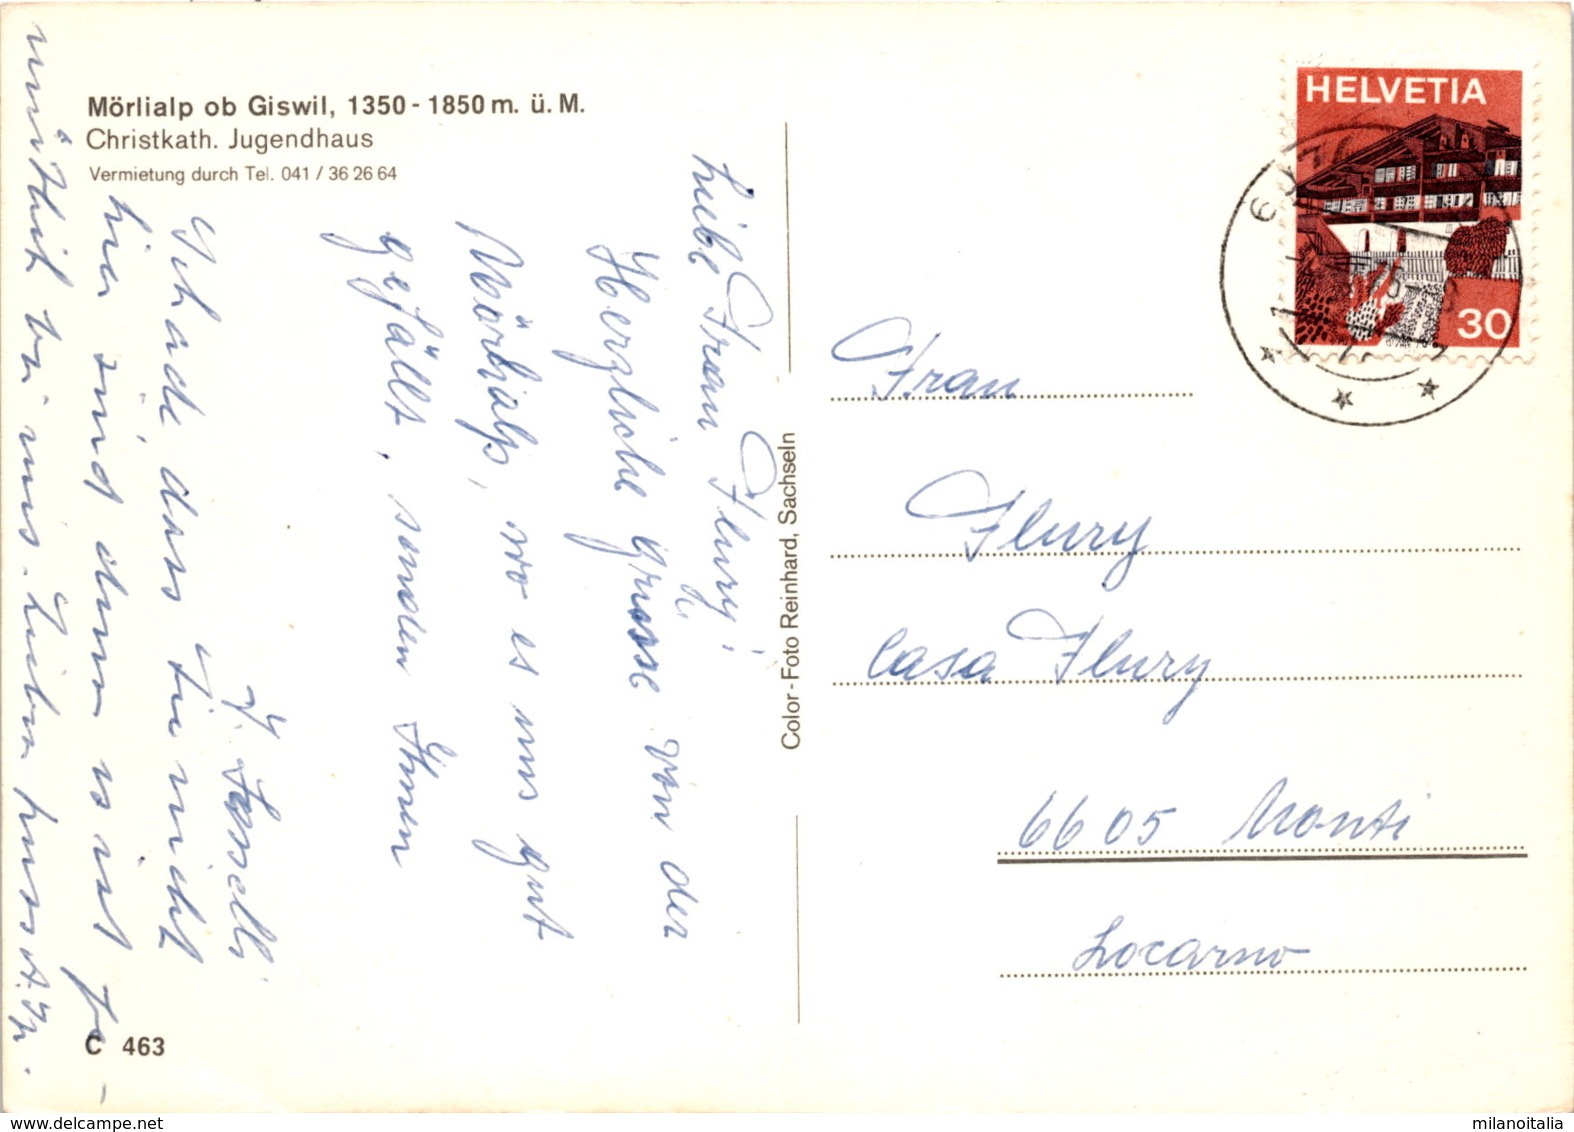 Mörlialp ob Giswil, 1350 - 1850 m. ü. M.
Christkath. Jugendhaus
Vermietung durch Tel. 041 / 36 26 64
Liebe Frau Flury!
Herzliche Grüsse von der
Mörlialp, wo es uns gut
gefällt, senden Ihnen
Schade, dass Sie nicht
hier sind denn es ist ge-
mütlich bei uns. Lieben
C 463
Color - Foto Reinhard, Sachseln
HELVETIA
30
Frau
Flury
Casa Flury
6605 Monti
Locarno
www.delcampe.net
milanoitalia